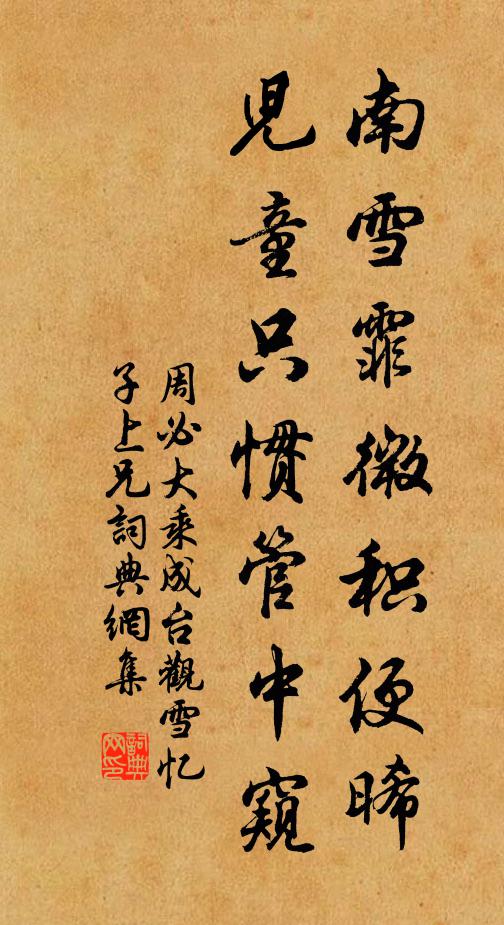 南雪霏微积便晞
児童只惯管中窥
周必大乘成台觀雪忆
子上兄詞典網集
詞典
网印